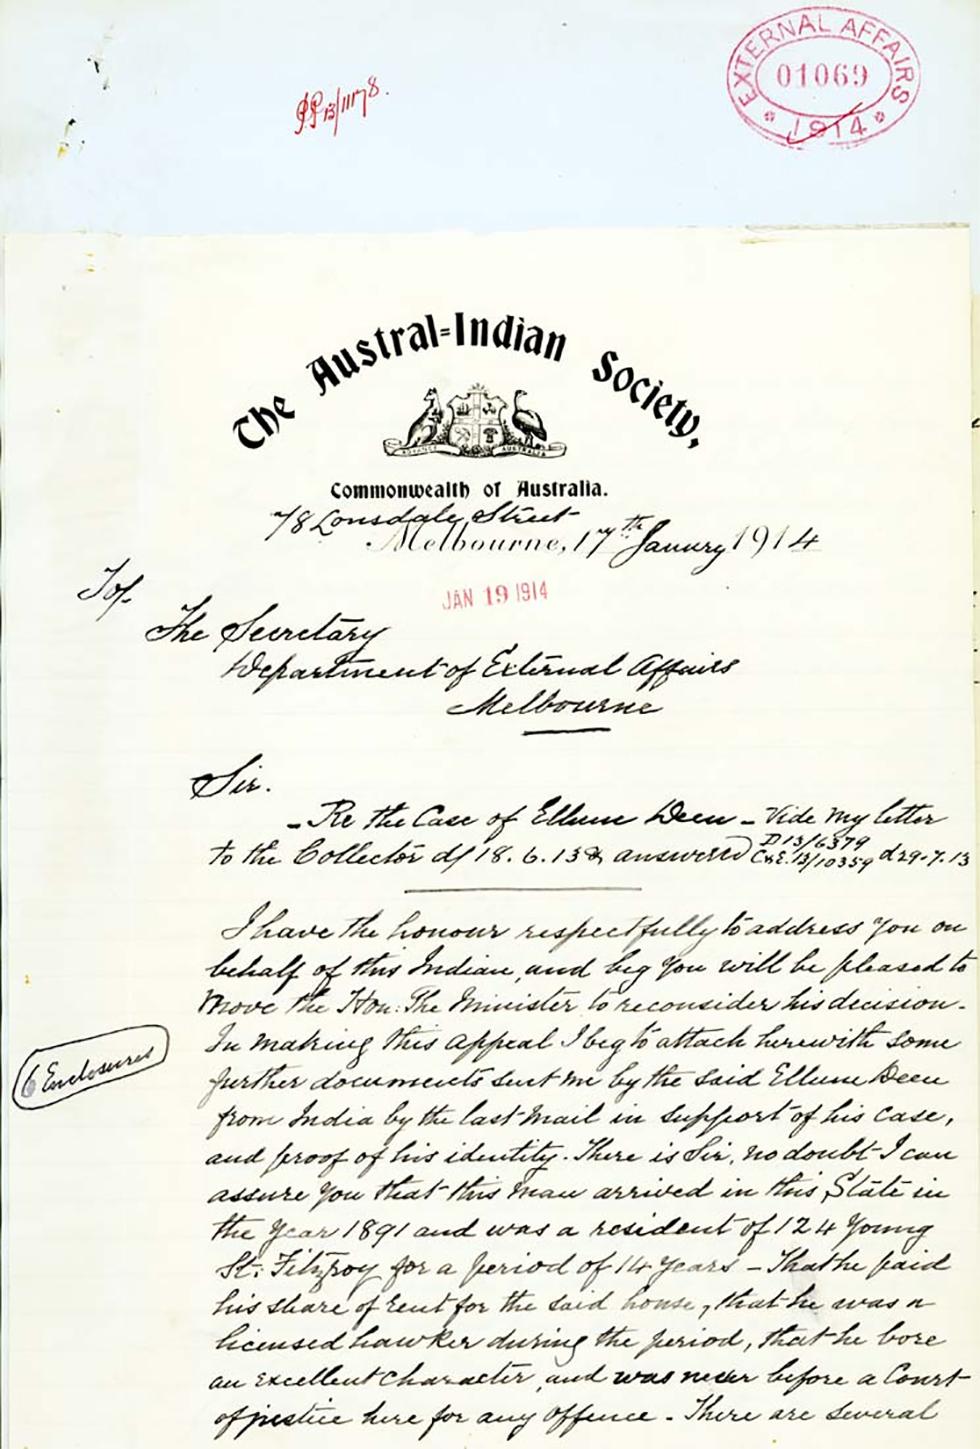 EXTERNAL AFFAIRS
01069
1914
The Austral=Indian Society,
ADVANCE AUSTRALIA
Commonwealth of Australia.
78 Lonsdale Street
Melbourne, 17th January 1914
JAN 19 1914
To/-
The Secretary
Department of External Affairs
Melbourne
Sir.
- Re the Case of Ellum Deen - Vide my letter
to the Collector d/ 18.6.13 & answered D13/6379 C&E.13/10359 d 29.7.13
I have the honour respectfully to address you on
behalf of this Indian, and beg you will be pleased to
move the Hon: The Minister to reconsider his decision.
In making this appeal I beg to attach herewith some
6 Enclosures
further documents sent me by the said Ellum Deen
from India by the last mail in support of his case,
and proof of his identity. There is Sir, no doubt I can
assure you that this man arrived in this State in
the year 1891 and was a resident of 124 Young
St: Fitzroy for a period of 14 years - That he paid
his share of rent for the said house, that he was a
licensed hawker during the period, that he bore
an excellent character, and was never before a Court
of justice here for any offence - There are several